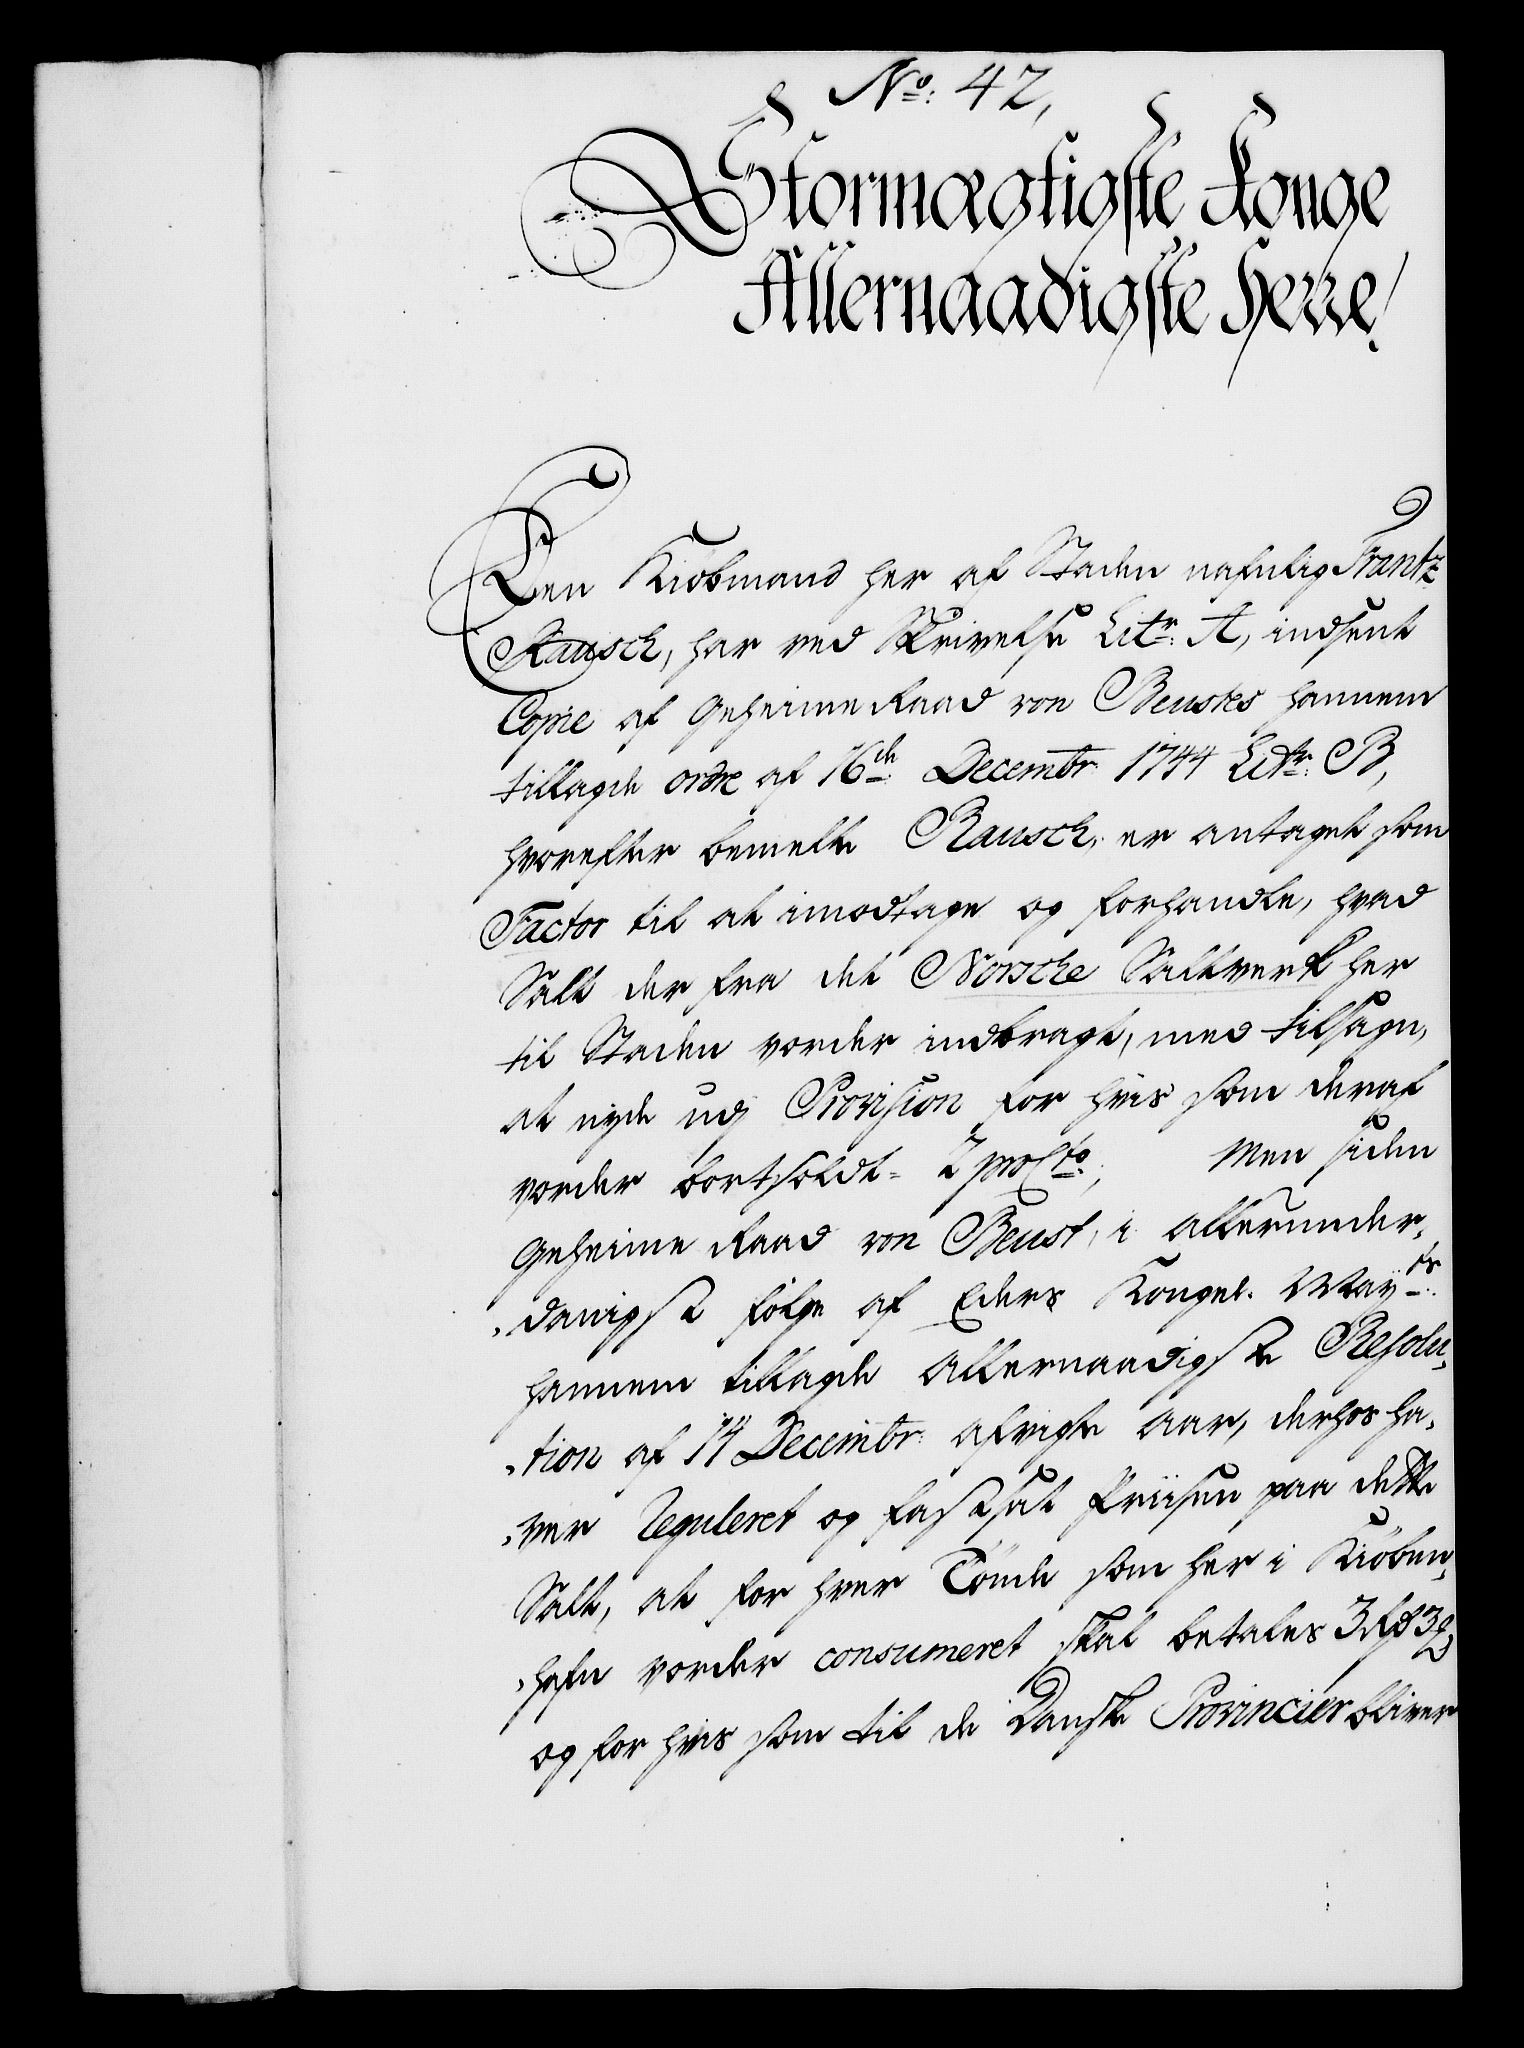 No: 42,
Stormægtigste Konge
Allernaadigste Herre!
Een Kiøbmand her af Staden nafnlig Frantz
Rausch, har ved Skrivelse Litr: A, indsent
Copie af Geheime Raad von Beustes hannem
tillagde ordre af 16de Decembr: 1744 Litr: B,
hvorefter bemelte Rausch, er antaget som
Factor til at imodtage og forhandle, hvad
Salt der fra det Norsche Saltverk her
til Staden vorder indbragt, med tilsagn,
at nyde udj Provision for hvis som deraf
vorder bortsoldt= 2 proCto; Men siden
Geheime Raad von Beust, i allerunder-
-danigst følge af Eders Kongel. Mayts:
hannem tillagde allernaadigste Resolu-
-tion af 14 Decembr: afvigte Aar, derhos ha-
-ver reguleret og fastsat Priisen paa dette
Salt, at for hver Tönde som her i Kiöben-
-hafn vorder consumeret skal betales 3 Rd 3 ß
og for hvis som til de Danske Provincier bliver